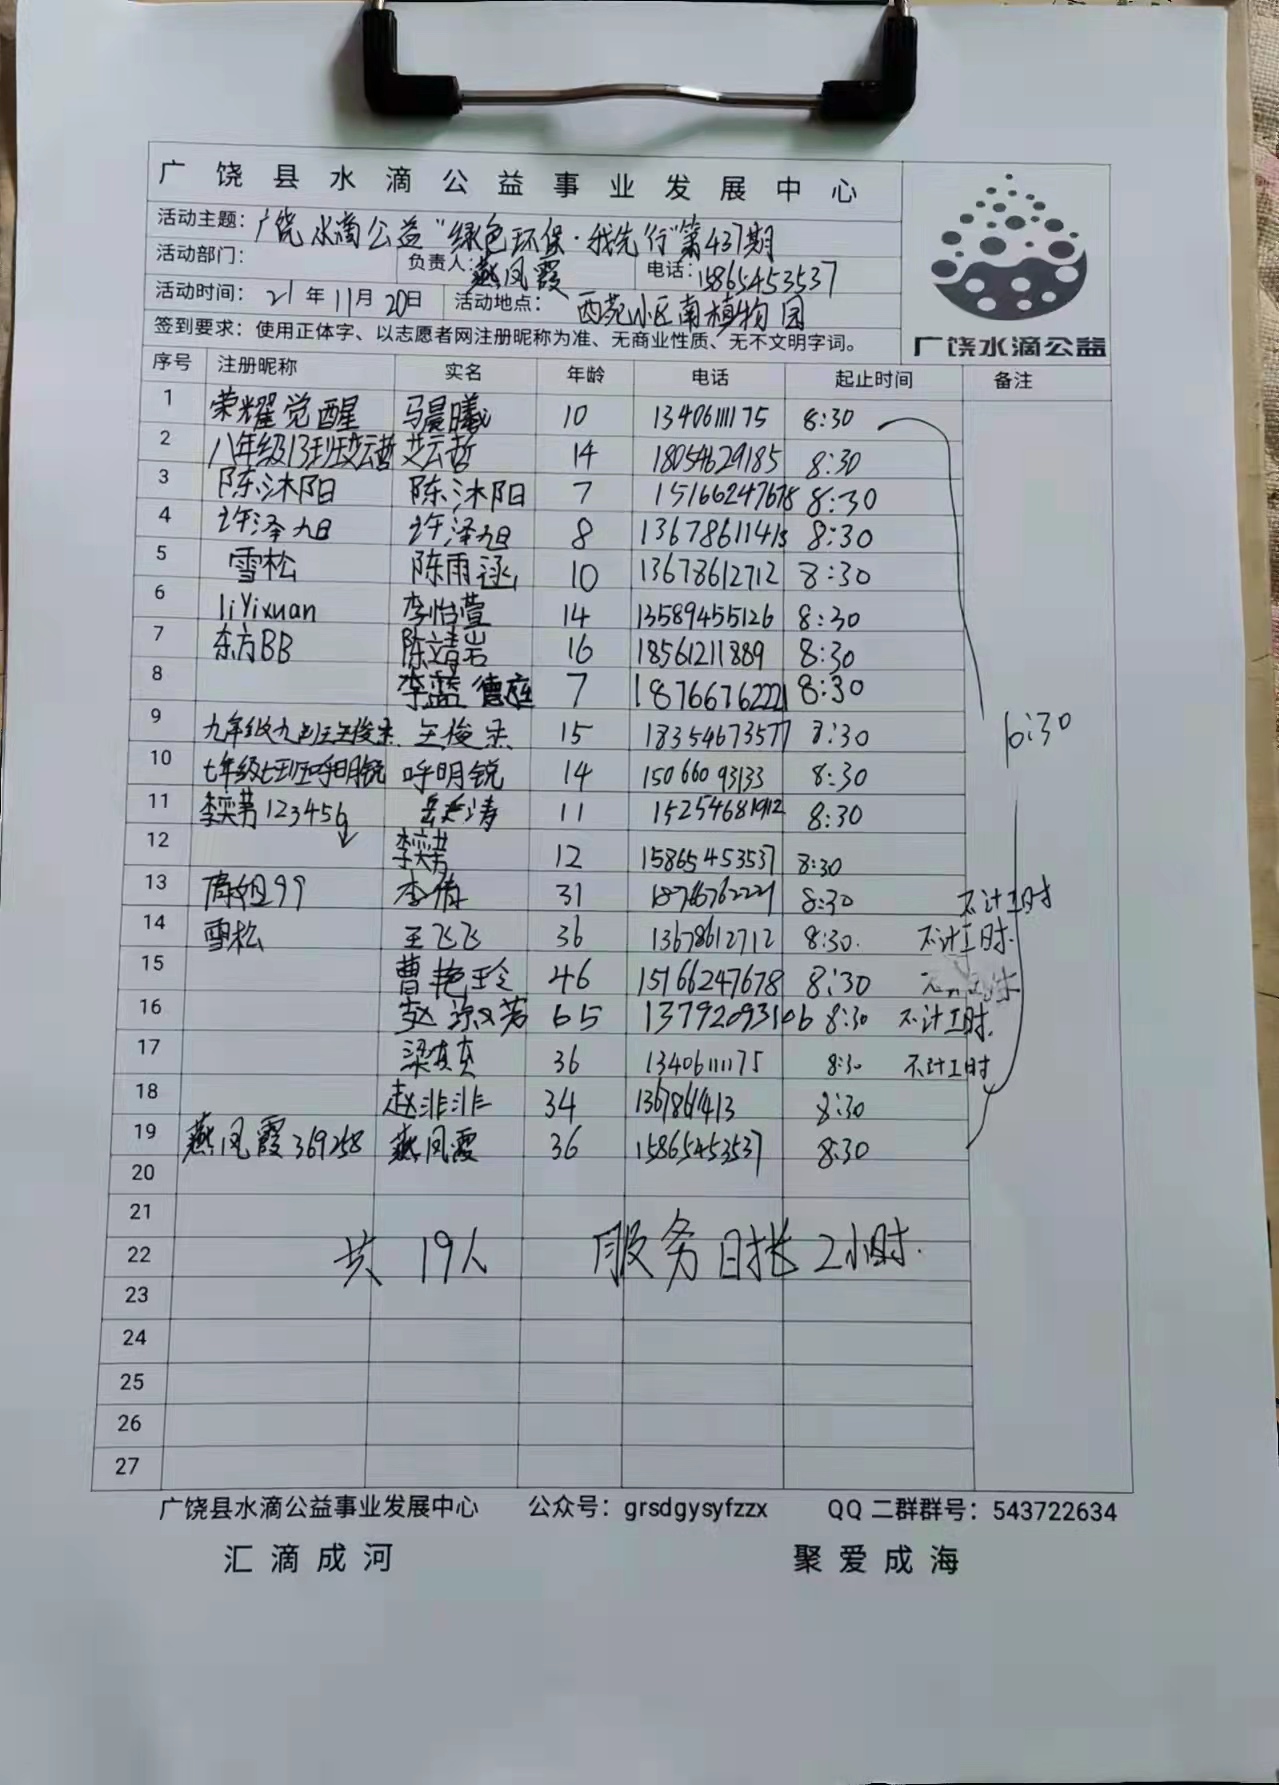 广饶县水滴公益事业发展中心
活动主题：广饶水滴公益“绿色环保·我先行”第437期
活动部门： 负责人：燕凤霞 电话：15865453537
活动时间：21年11月20日 活动地点：西苑小区南植物园
签到要求：使用正体字、以志愿者网注册昵称为准、无商业性质、无不文明字词。
广饶水滴公益
序号 注册昵称 实名 年龄 电话 起止时间 备注
1 荣耀觉醒 马晨曦 10 13406111175 8:30
2 八年级13班艾云哲 艾云哲 14 18054629185 8:30
3 陈沐阳 陈沐阳 7 15166247678 8:30
4 许泽旭 许泽旭 8 13678611413 8:30
5 雪松 陈雨涵 10 13678612712 8:30
6 liYixuan 李怡萱 14 13589455126 8:30
7 东方BB 陈靖岩 16 18561211889 8:30
8 李蓝德庭 7 18766762221 8:30
9 九年级九班王俊杰 王俊杰 15 18354673577 8:30 10:30
10 七年级七班呼明锐 呼明锐 14 15066093133 8:30
11 李奕芳123456 岳 涛 11 15254681912 8:30
12 李奕芳 12 15865453537 8:30
13 倩姐99 李倩 31 18766762221 8:30 不计工时
14 雪松 王飞飞 36 13678612712 8:30. 不计工时.
15 曹艳玲 46 15166247678 8:30 不计工时
16 赵 芳 65 13792093106 8:30 不计工时.
17 梁真真 36 13406111175 8:30 不计工时
18 赵非非 34 1367861413 8:30
19 燕凤霞369258 燕凤霞 36 15865453537 8:30
20
21
22 共19人 服务时长2小时.
23
24
25
26
27
广饶县水滴公益事业发展中心 公众号：grsdgysyfzzx QQ 二群群号：543722634
汇滴成河 聚爱成海